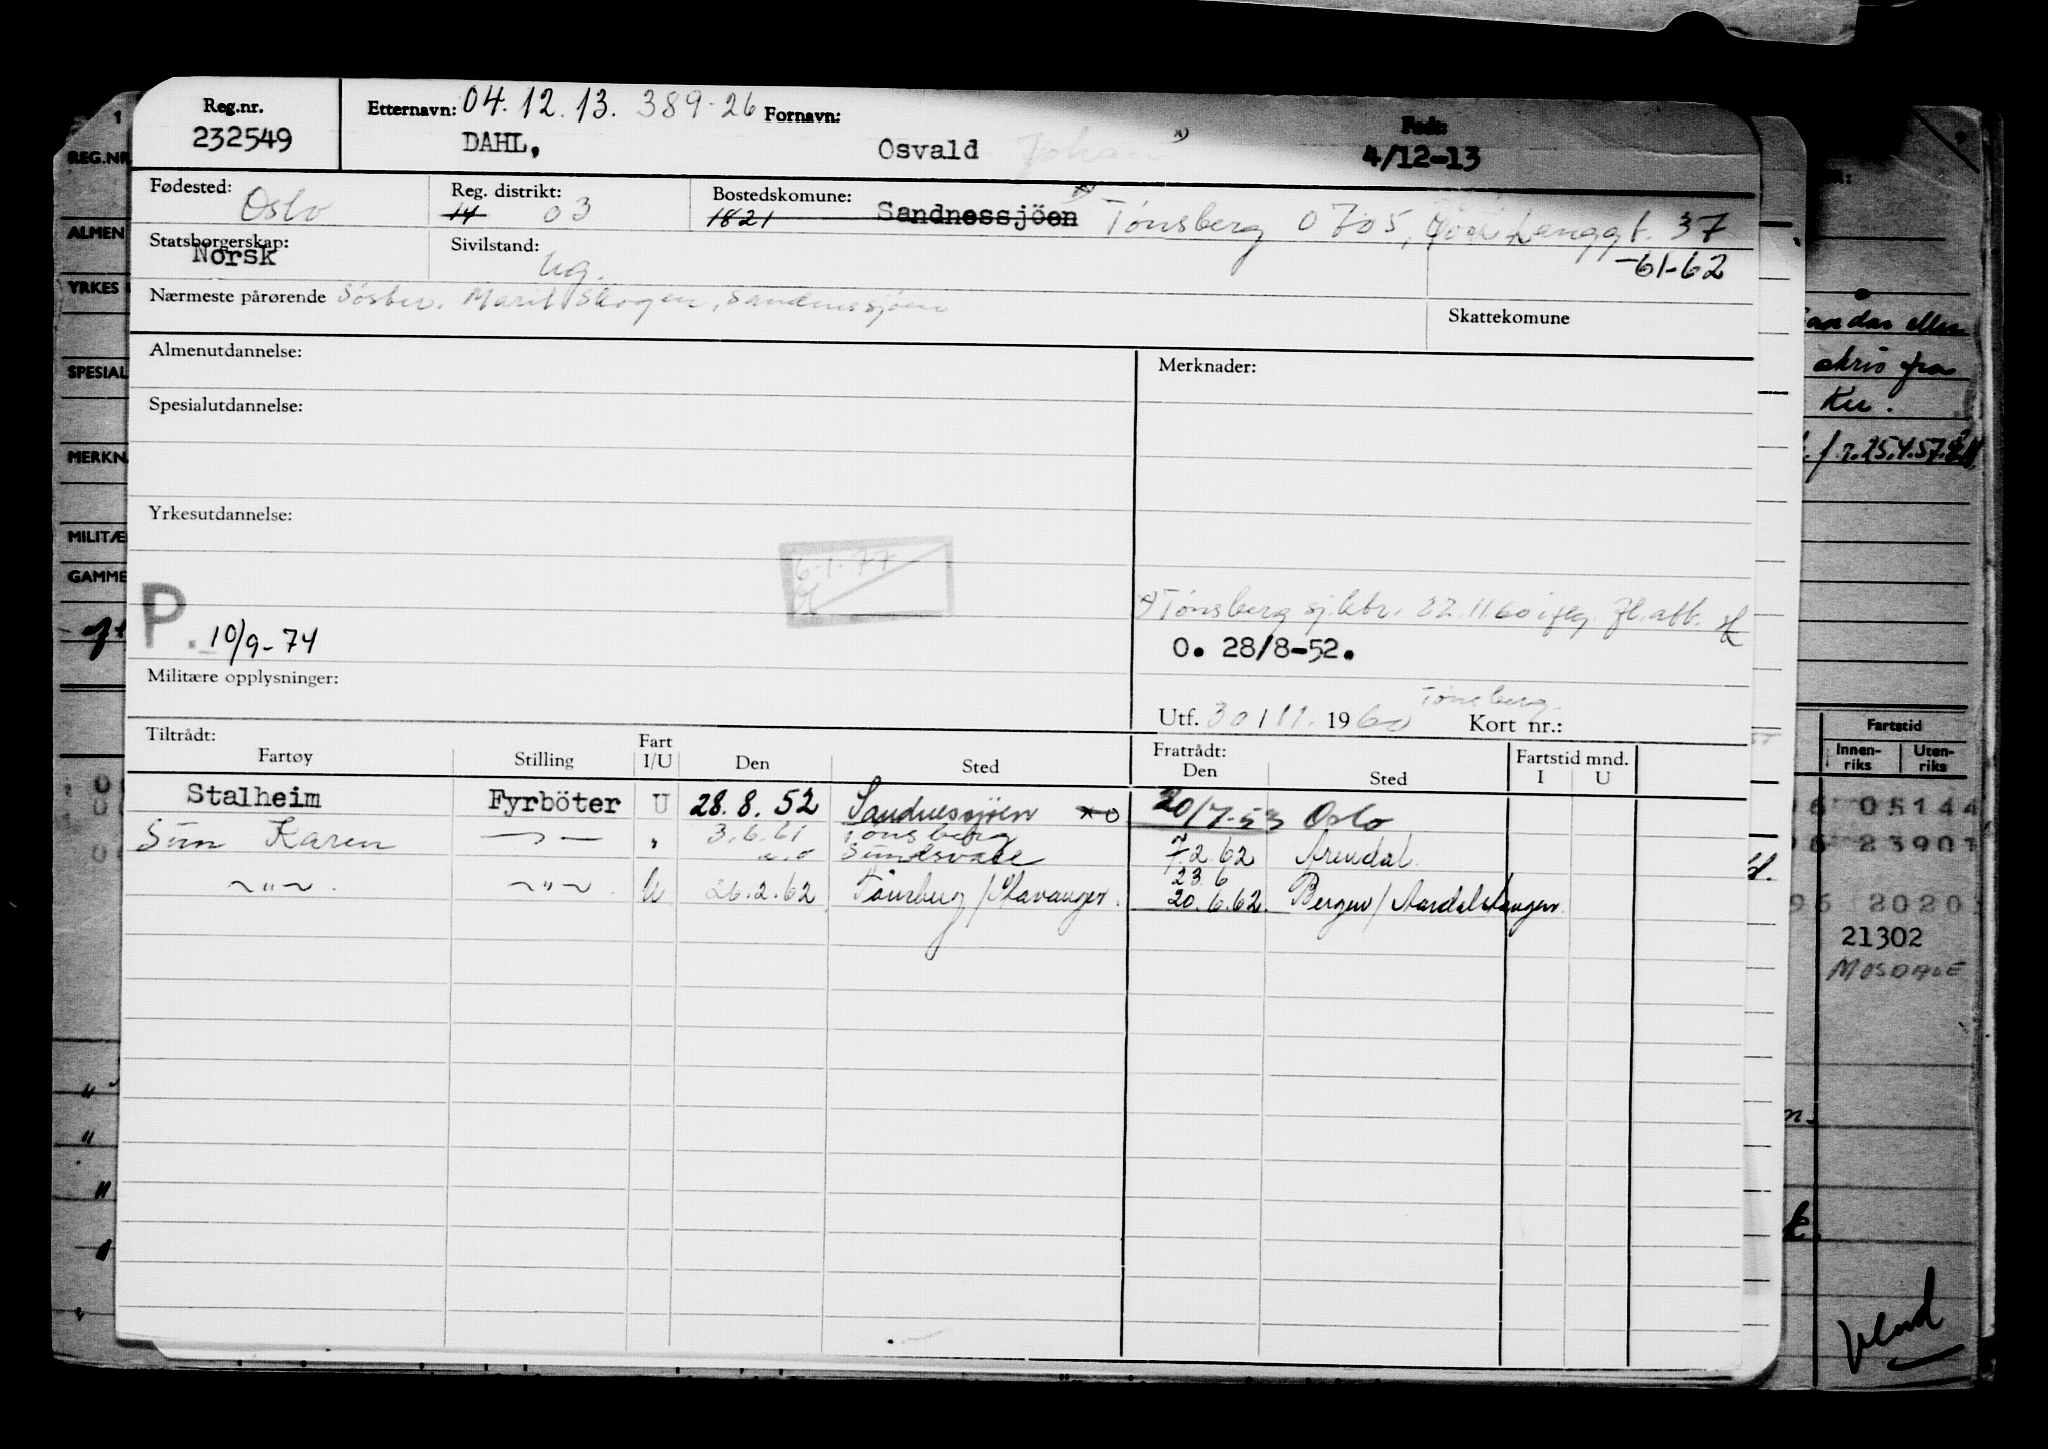 Reg.nr.
232549
Etternavn: 04.12.13. 389-26 Fornavn:
DAHL, Osvald Johan x)
Født:
4/12-13
Fødested: Oslo
Reg. distrikt: 14 03
Bostedskomune: 1821 Sandnessjöen x) Tønsberg 0705, Langgt. 37
-61-62
Statsborgerskap: Norsk
Sivilstand: ug.
Nærmeste pårørende Søster. Marit Skogen, Sandnessjøen
Skattekomune
Almenutdannelse:
Merknader:
Spesialutdannelse:
Yrkesutdannelse:
6-1-77
P. 10/9-74
x) Tønsberg sj.ktr. 22.11.60
O. 28/8-52.
Militære opplysninger:
Utf. 30/11. 1960 Tønsberg. Kort nr.:
Tiltrådt: Fratrådt:
Fartøy Stilling Fart I/U Den Sted Den Sted Fartstid mnd. I U
Stalheim Fyrböter U 28.8.52 Sandnessjöen xo 20/7-53 Oslo
Sun Karen — " — " 3.6.61 Tønsberg
a.o Sundsvall 7.2.62 Arendal.
~"~ ~"~ U 26.2.62 Tønsberg/Stavanger. 23.6
20.6.62. Bergen/Aardalstangen.
1
REG.NR
ALMEN
YRKES
SPESIAL
MERKN
MILITÆ
GAMME
skriv fra
Fartstid
Innen-riks Uten-riks
05144
23901
2020
21302
MOSDALE